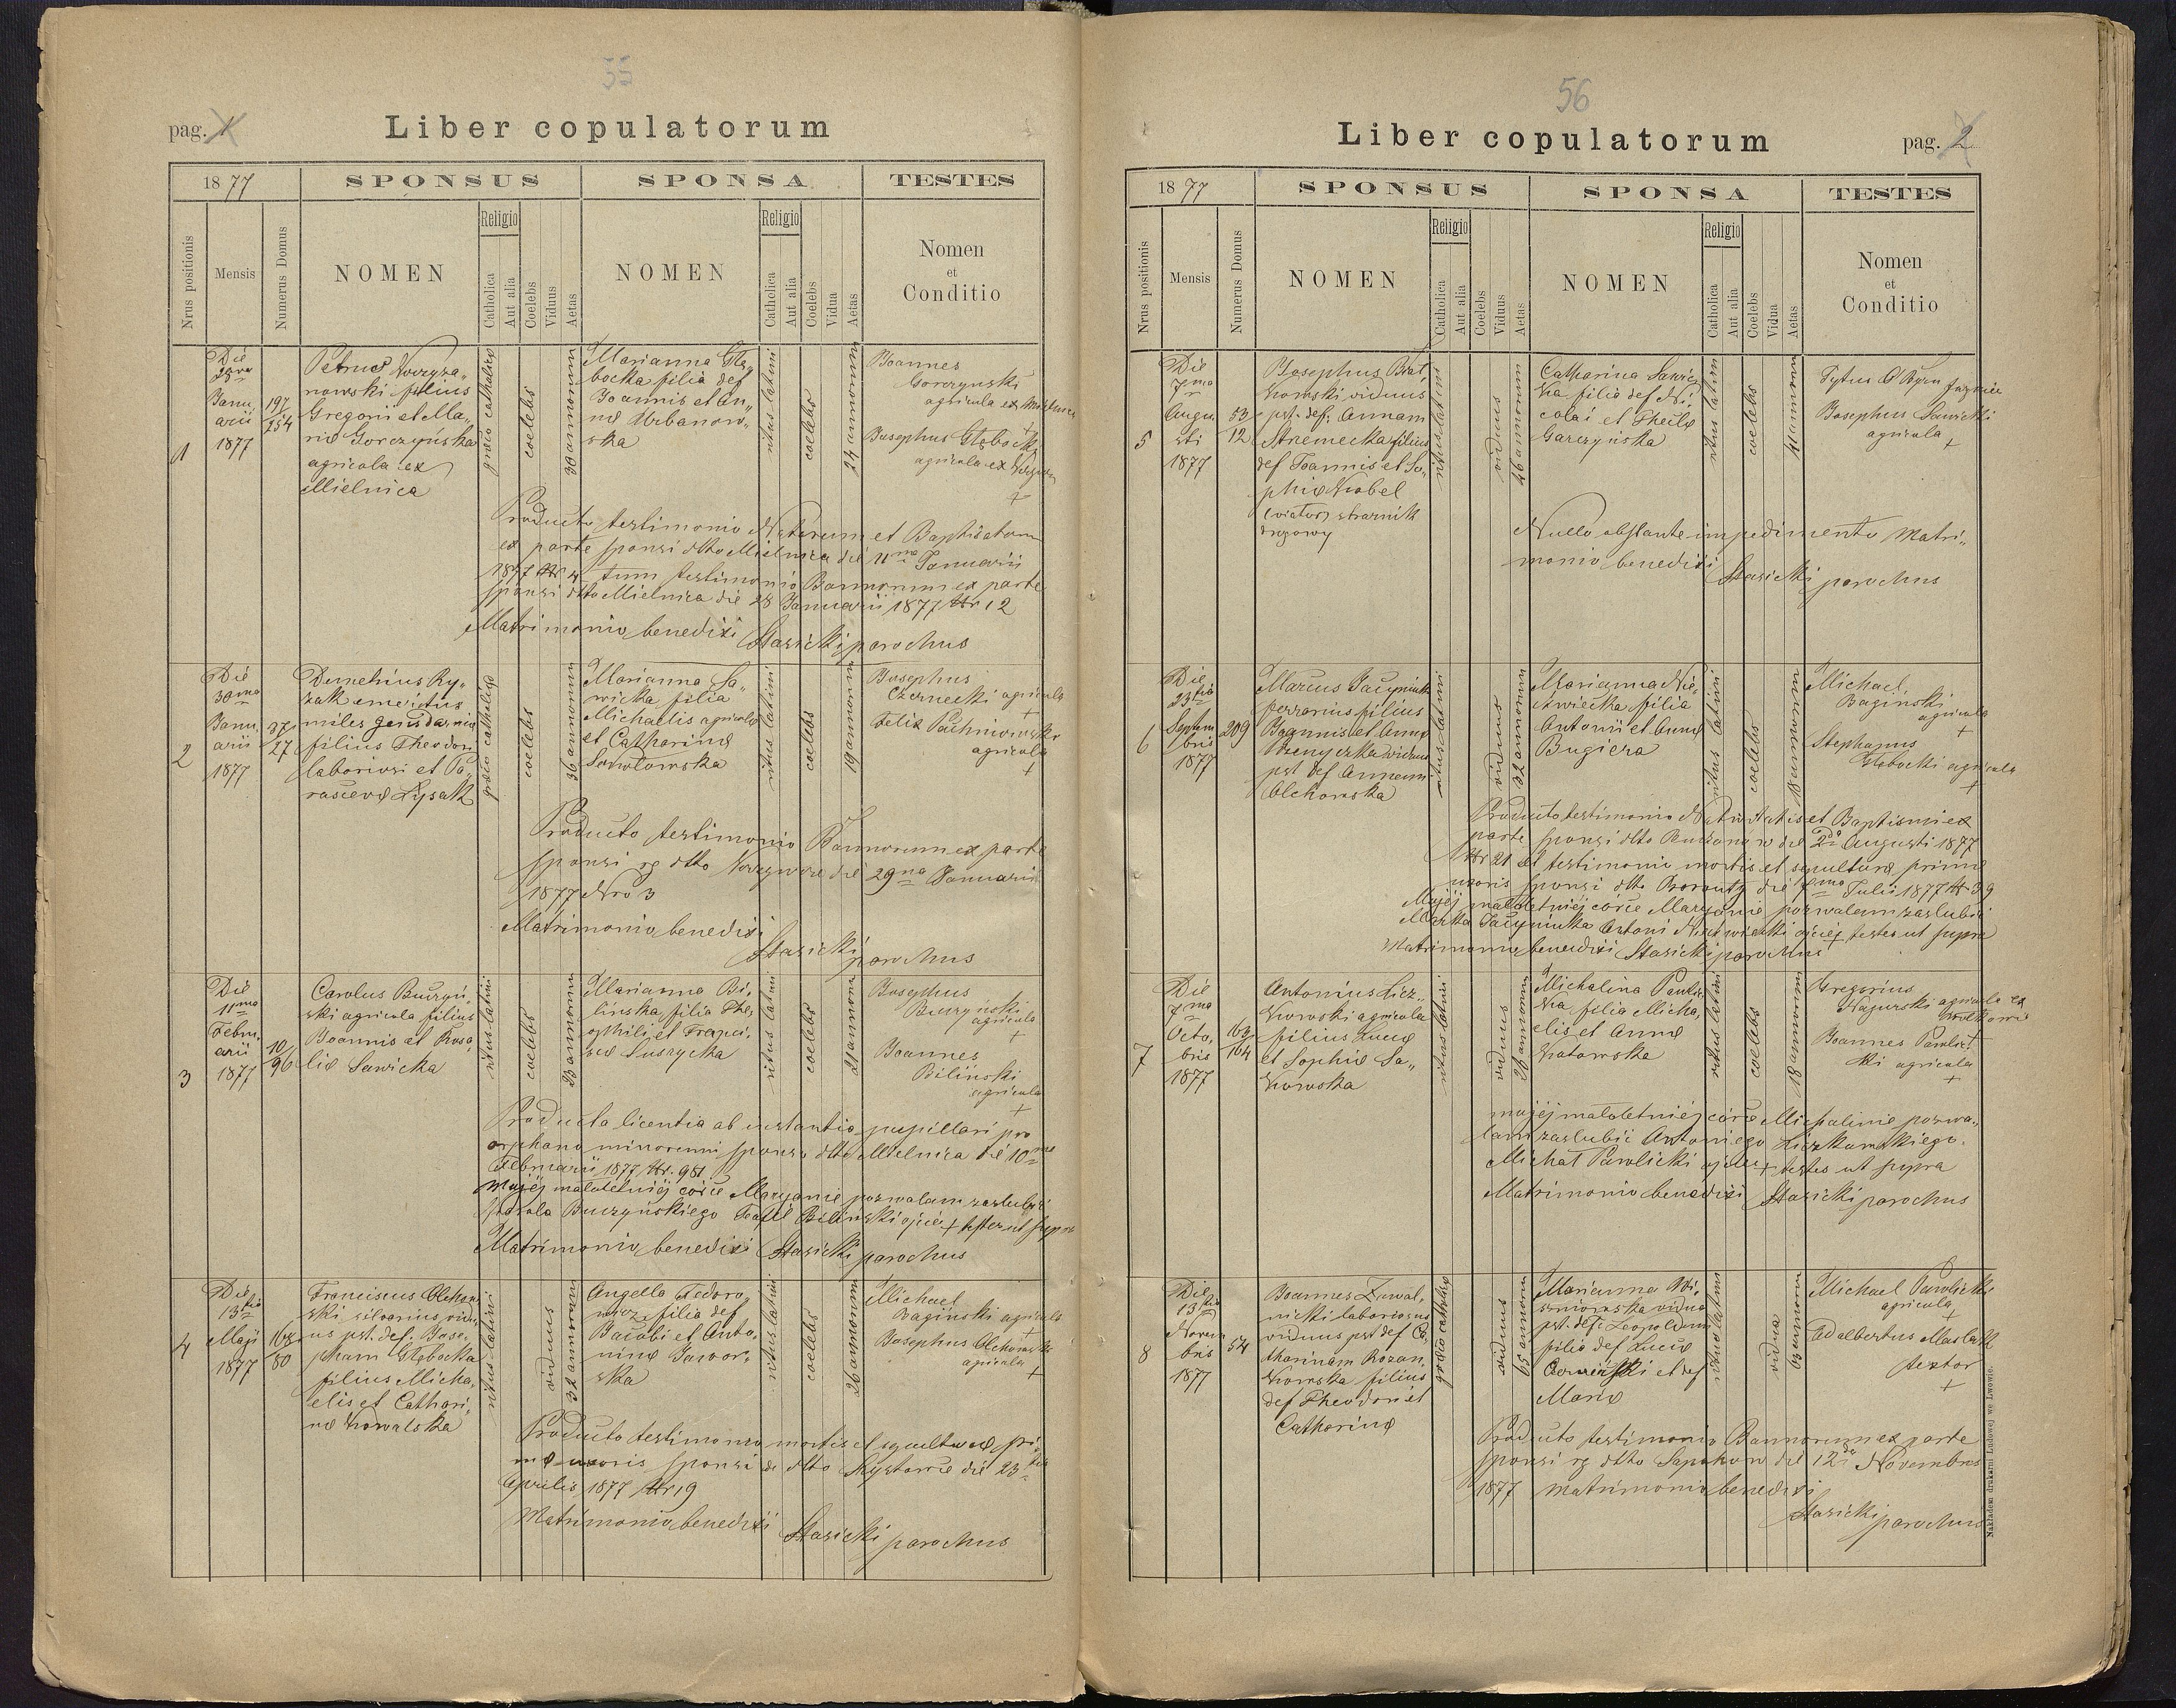 55
Liber copulatorum
pag. 1
1877
SPONSUS
SPONSA
TESTES
Nrus positionis
Mensis
Numerus Domus
NOMEN
Religio
Catholica
Aut alia
Coelebs
Viduus
Aetas
NOMEN
Religio
Catholica
Aut alia
Coelebs
Vidua
Aetas
Nomen
et
Conditio
1
Die
Janu„
arii
1877
197
254
Petrus
nowski filius
Gregorii et Ma„
riæ Gorczyńska
agricola ex
Mielnica
græco catholico
coelebs
30 annorum
Marianna Głę„
bocka filia def
Joannis et An„
næ Urbanow„
ska
ritus latini
coelebs
24 annorum
Joannes
Gorczynski
agricola ex Mielnica
+
Josephus Głębocki
agricola ex
+
Producto testimonio Natorum et Baptisatorum
ex parte sponsi dtto Mielnica die 11ma Januarii
1877 Nr 4 tum testimonio Bannorum ex parte
sponsi dtto Mielnica die 28 Januarii 1877 Nr 12
Matrimonio benedixi Stasicki parochus
2
Die
30ma
Janu„
arii
1877
27
Demetrius Ry„
zak emeritus
miles gensdarmiæ
filius Theodori
laboriosi et Pa„
rascevæ Lysak
græco catholico
coelebs
36 annorum
Marianna Sa„
wicka filia
Michaelis agricolæ
et Catharinæ
Sokołowska
ritus latini
coelebs
19 annorum
Josephus
Czernecki agricola
+
Felix
agricola
+
Producto testimonio Bannorum ex parte
sponsi rg dtto die 29na Januarii
1877 Nro 3
Matrimonio benedixi
Stasicki parochus
3
Die
11ma
Febru„
arii
1877
10
96
Carolus Buczyń„
ski agricola filius
Joannis et Rosa„
liæ Sawicka
ritus latini
coelebs
23 annorum
Marianna Bi„
lińska, filia The„
ophili et Franci„
scæ
ritus latini
coelebs
21 annorum
Josephus
Buczyński
agricola
+
Joannes
Biliński
agricola
+
Producta licentia ab instantia pupillari pro
orphano minorenni sponso dtto Mielnica die 10ma
Februarii 1877 Nr. 981
Mojéj małoletniéj córce Maryannie pozwalam zaślubić
Karola Buczyńskiego Teofil Biliński ojciec + testes ut supra
Matrimonio benedixi Stasicki parochus
4
Die
13tia
Maji
1877
168
80
Franciscus Olchow
ski silvarius vidu„
us pst. def. Jose„
pham Głębocka
filius Micha„
elis et Cathari„
næ Kowalska
ritus latini
viduus
32 annorum
Angella Fedoro„
wicz filia def
Jacobi et Anto„
ninæ Jawor„
ska
ritus latini
coelebs
26 annorum
Michael
Bagiński agricola
+
Josephus Olchowski
agricola
+
Producto testimonio mortis et sepulturæ pri„
mæ uxoris sponsi de dtto die 23tia
Aprilis 1877 Nr 19
Matrimonio benedixi Stasicki parochus
56
Liber copulatorum
pag. 2
1877
SPONSUS
SPONSA
TESTES
Nrus positionis
Mensis
Numerus Domus
NOMEN
Religio
Catholica
Aut alia
Coelebs
Viduus
Aetas
NOMEN
Religio
Catholica
Aut alia
Coelebs
Vidua
Aetas
Nomen
et
Conditio
5
Die
7ma
Augu„
sti
1877
53
12
Josephus Biał„
kowski viduus
pst. def: Annam
Stremecka filius
def Joannis et So„
phiæ Wróbel
(viator) strażnik
drogowy
ritus latini
viduus
46 annorum
Catharina Sawic
ka filia def Ni„
colai et Theclæ
Garczyńska
ritus latini
coelebs
41 annorum
Tytus
Josephus Sawicki
agricola
+
Nullo obstante impedimento Matri„
monio benedixi Stasicki parochus
6
Die
23tia
Septem
bris
1877
209
Marcus Pacyniak
ferrarius filius
Joannis et Annæ
viduus
pst def Annam
Olchowska
ritus latini
viduus
32 annorum
Marianna Nie„
dzwiecka filia
Antonii et Annæ
Bugiera
ritus latini
coelebs
18 annorum
Michael
Baginski
agricola
+
Stephanus
Głębocki agricola
+
Producto testimonio Nativitatis et Baptismi ex
parte sponsi dtto die 2da Augusti 1877
Nr 21 et testimonio mortis et sepulturæ primæ
uxoris sponsi dtto die 7ma Julii 1877 Nr 39
Mojéj małoletniéj córce Maryannie pozwalam zaślubić
Marka Antoni ojciec + testes ut supra
Matrimonio benedixi Stasicki parochus
7
Die
7ma
Octo„
bris
1877
163
164
Antonius Licz„
kowski agricola
filius Lucæ
et Sophiæ Sa„
kowska
ritus latini
viduus
28 annorum
Michalina Pawlic
ka filia Micha„
elis et Annæ
ritus latini
coelebs
18 annorum
Gregorius
Nagurski agricola ex
+
Joannes Pawlic„
ki agricola
+
mojéj małoletniéj córce Michalinie pozwa„
lam zaślubić Antoniego Liczkowskiego.
Michał Pawlicki ojciec + testes ut supra
Matrimonio benedixi Stasicki parochus
8
Die
13tia
Novem
bris
1877
54
Joannes
nicki laboriosus
viduus pst def Ca„
tharinam Rozan„
kowska filius
def Theodori et
Catharinæ
græco catholico
viduus
65 annorum
Marianna Wi„
sniowska vidua
pst. def: Leopoldum
filia def Lucæ
et def
Mariæ
ritus latini
vidua
63 annorum
Michael Pawlicki
agricola
+
Adalbertus Maślak
textor
+
Producto testimonio Bannorum ex parte
sponsi rg dtto Sapohow die 12da Novembris
1877 matrimonio benedixi
Stasicki parochus
Nakładem drukarni Ludowej we Lwowie.